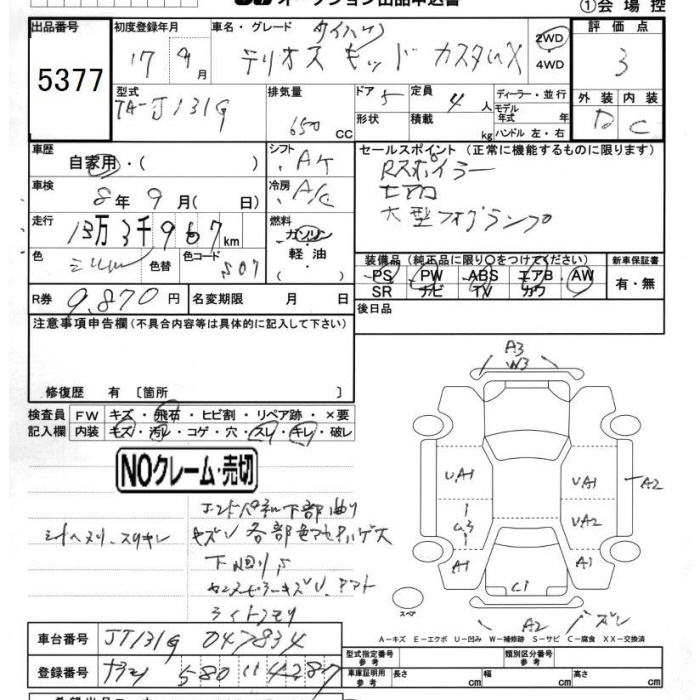 オークション出品申込書
①会場控
出品番号
5377
初度登録年月
17 9月
車名・グレード ダイハツ
テリオス キッド カスタムX
2WD
・
4WD
評価点
3
型式
TA-J131G
排気量
650 CC
ドア 5
形状
定員 4人
積載 kg
ディーラー・並行
モデル年式 年
ハンドル 左・右
外装 D
内装 C
車歴
自家用・( )
シフト
AT
セールスポイント (正常に機能するものに限ります)
Rスポイラー
大型フォグランプ
車検
8年 9月( 日)
冷房
A/C
走行
13万3千967km
燃料
ガソリン
軽・油
色
シルバー
色替
色コード
S07
装備品 (純正品に限り○をつけてください)
PS PW ABS エアB AW
SR ナビ TV カワ
新車保証書
有・無
R券 9,870円
名変期限 月 日
後日品
注意事項申告欄(不具合内容等は具体的に記入して下さい)
修復歴 有 〔箇所 〕
検査員記入欄
FW キズ・飛石・ヒビ割・リペア跡・×要
内装 キズ・汚れ・コゲ・穴・スレ・キレ・破レ
NOクレーム・売切
エンドパネル下部曲り
シートヘタリ、スリキレ
キズU各部色アセ、ハゲ大
下回りサ
ライトクモリ
A3
W3
UA1 UA1 A2
U3 UA2
A1 A1
C1
スペア
A2 バズレ
A-キズ E-エクボ U-凹み W-補修跡 S-サビ C-腐食 XX-交換済
車台番号 JT131G 047834
登録番号 580 11 4287
型式指定番号 参考
類別区分番号 参考
車庫証明用 参考 長さ cm 幅 cm 高さ cm